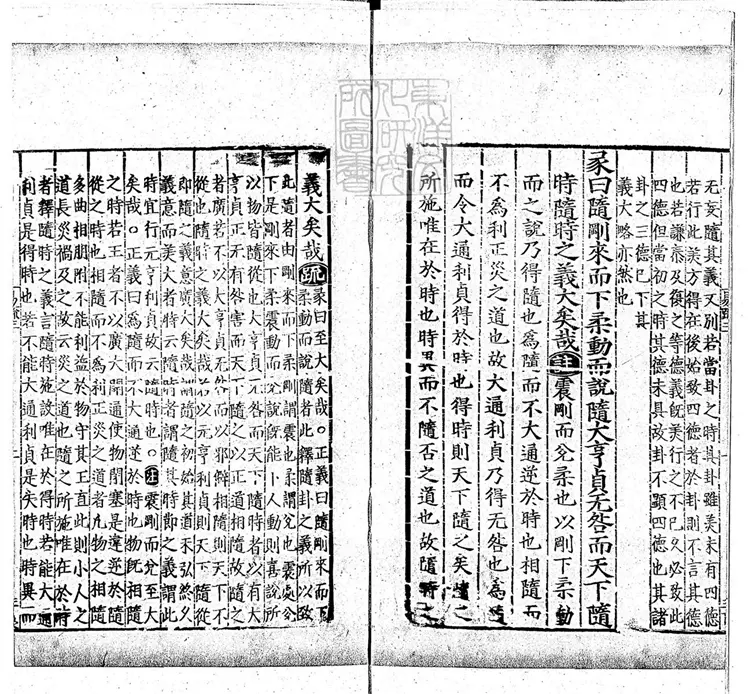 无妄隨其義又別若當卦之時其卦雖美未有四德
若行此美方得在後始致四德者於卦則不言其德
也若謙泰及復之等德義既美行之不已久必致此
四德但當初之時其德未具故卦不顯四德也其諸
卦之三德已下其
義大略亦然也
彖曰隨剛來而下柔動而說隨大亨貞无咎而天下隨
時隨時之義大矣哉注震剛而兌柔也以剛下柔動
而之說乃得隨也為隨而不大通逆於時也相隨而
不為利正災之道也故大通利貞乃得无咎也為隨
而令大通利貞得於時也得時則天下隨之矣隨之
所施唯在於時也時異而不隨否之道也故隨時之
義大矣哉疏彖曰至大矣哉。正義曰隨剛來而下
柔動而說隨者此釋隨卦之義所以致
此隨者由剛來而下柔剛謂震也柔謂兌也震處兌
下是剛來下柔震動而兌說既能下人動則喜說所
以物皆隨從也大亨貞无咎而天下隨時者以有大
亨貞正无有咎害而天下隨之以正道相隨故隨之
者廣若不以大亨貞无咎而以邪僻相隨則天下不
從也隨時之義大矣哉若以元亨利貞則天下隨從
即隨之義意廣大矣哉謂隨之初始其道未弘終久
義意而美大者將云隨時者謂隨其時節之義謂此
時宜行元亨利貞故云隨時也。注震剛而兌至大
矣哉。正義曰為隨而不大通逆於時也物既相隨
之時若王者不以廣大開通使物閉塞是違逆於隨
從之時也相隨而不為利正災之道者凡物之相隨
多曲相朋附不能利益於物守其正直此則小人之
道長災禍及之故云災之道也隨之所施唯在於時
者釋隨時之義言隨時施設唯在於得時若能大通
利貞是得時也若不能大通利貞是失時也時異而